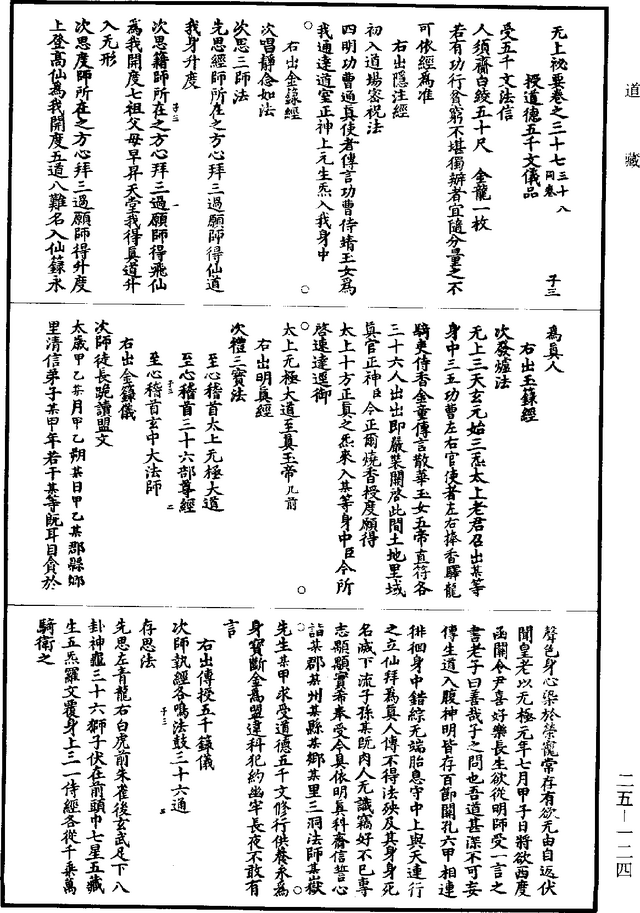 道藏
无上祕要卷之三十七 三十八同卷 子三
授道德五千文儀品
受五千文法信
人須齋白絞五十尺 金龍一枚
若有功行貧窮不堪獨辦者宜隨分量之不
可依經為准
右出隱注經
初入道場密祝法
四明功曹通真使者傳言功曹侍靖玉女為
我通達道室正神上元生炁入我身中
右出金籙經
次唱靜念如法
次思三師法
先思經師所在之方心拜三過願師得仙道
我身升度
次思籍師所在之方心拜三過願師得飛仙
為我開度七祖父母早昇天堂我得真道升
入无形
次思度師所在之方心拜三過願師得升度
上登高仙為我開度五道八難名入仙籙永
為真人
右出玉籙經
次發爐法
无上三天玄元始三炁太上老君召出某等
身中三五功曹左右官使者左右捧香驛龍
騎吏侍香金童傳言散華玉女五帝直符各
三十六人出出即嚴裝關啓此間土地里域
真官正神臣今正爾燒香授度願得
太上十方正真之炁來入某等身中臣今所
啓速達逕御
太上无極大道至真玉帝几前
右出明真經
次禮三寶法
至心稽首太上无極大道
至心稽首三十六部尊經
至心稽首玄中大法師
右出金籙儀
次師徒長跪讀盟文
太歲甲乙某月甲乙朔某日甲乙某郡縣鄉
里清信弟子某甲年若干某等既耳目貪於
聲色身心染於榮寵常存有欲无由自返伏
聞皇老以无極元年七月甲子日將欲西度
函關令尹喜好樂長生欲從明師受一言之
書老子曰善哉子之問也吾道甚深不可妄
傳生道入腹神明皆存百節開孔六甲相連
徘徊身中錯綜无端胎息守中上與天連行
之立仙拜為真人傳不得法殃及其身身死
名滅下流子孫某既肉人无識竊好不已專
志顒顒實希奉受今具依明真科齎信誓心
詣某郡某州某縣某鄉某里三洞法師某嶽
先生某甲求受道德五千文修行供養永為
身寶斷金為盟違科犯約幽牢長夜不敢有
言
右出傳授五千籙儀
次師執經各鳴法鼓三十六通
存思法
先思左青龍右白虎前朱雀後玄武足下八
卦神龜三十六獅子伏在前頭巾七星五藏
生五炁羅文覆身上三一侍經各從千乘萬
騎衛之
二五—一二四